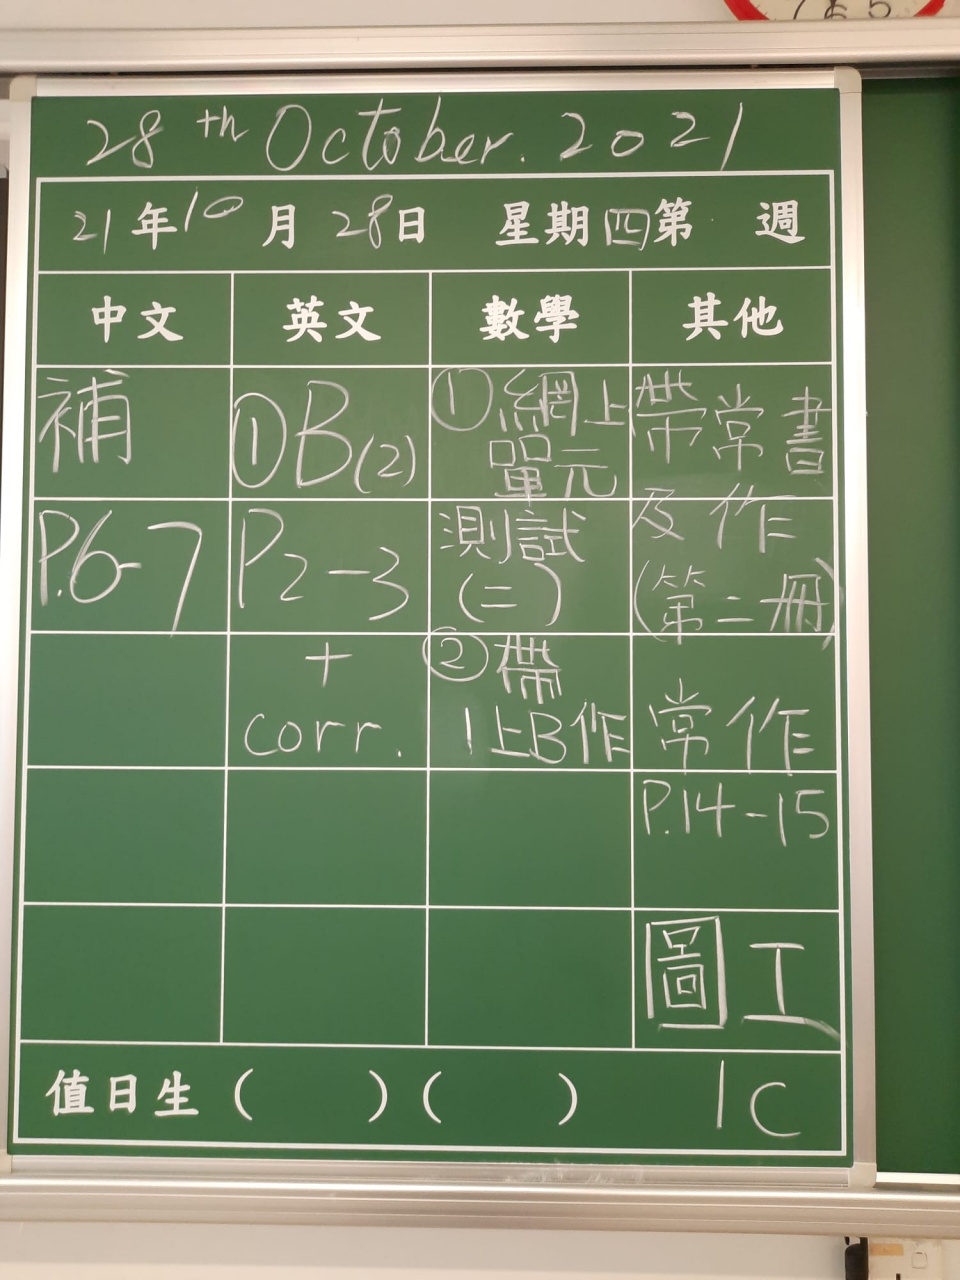 28th October. 2021
21年10月28日 星期四第 週
中文 英文 數學 其他
補
P.6-7
①B(2)
P2-3
+
corr.
①網上
單元
測試
(二)
②帶
1上B作
帶常書
及作
(第二冊)
常作
P.14-15
圖工
值日生( )( ) 1C